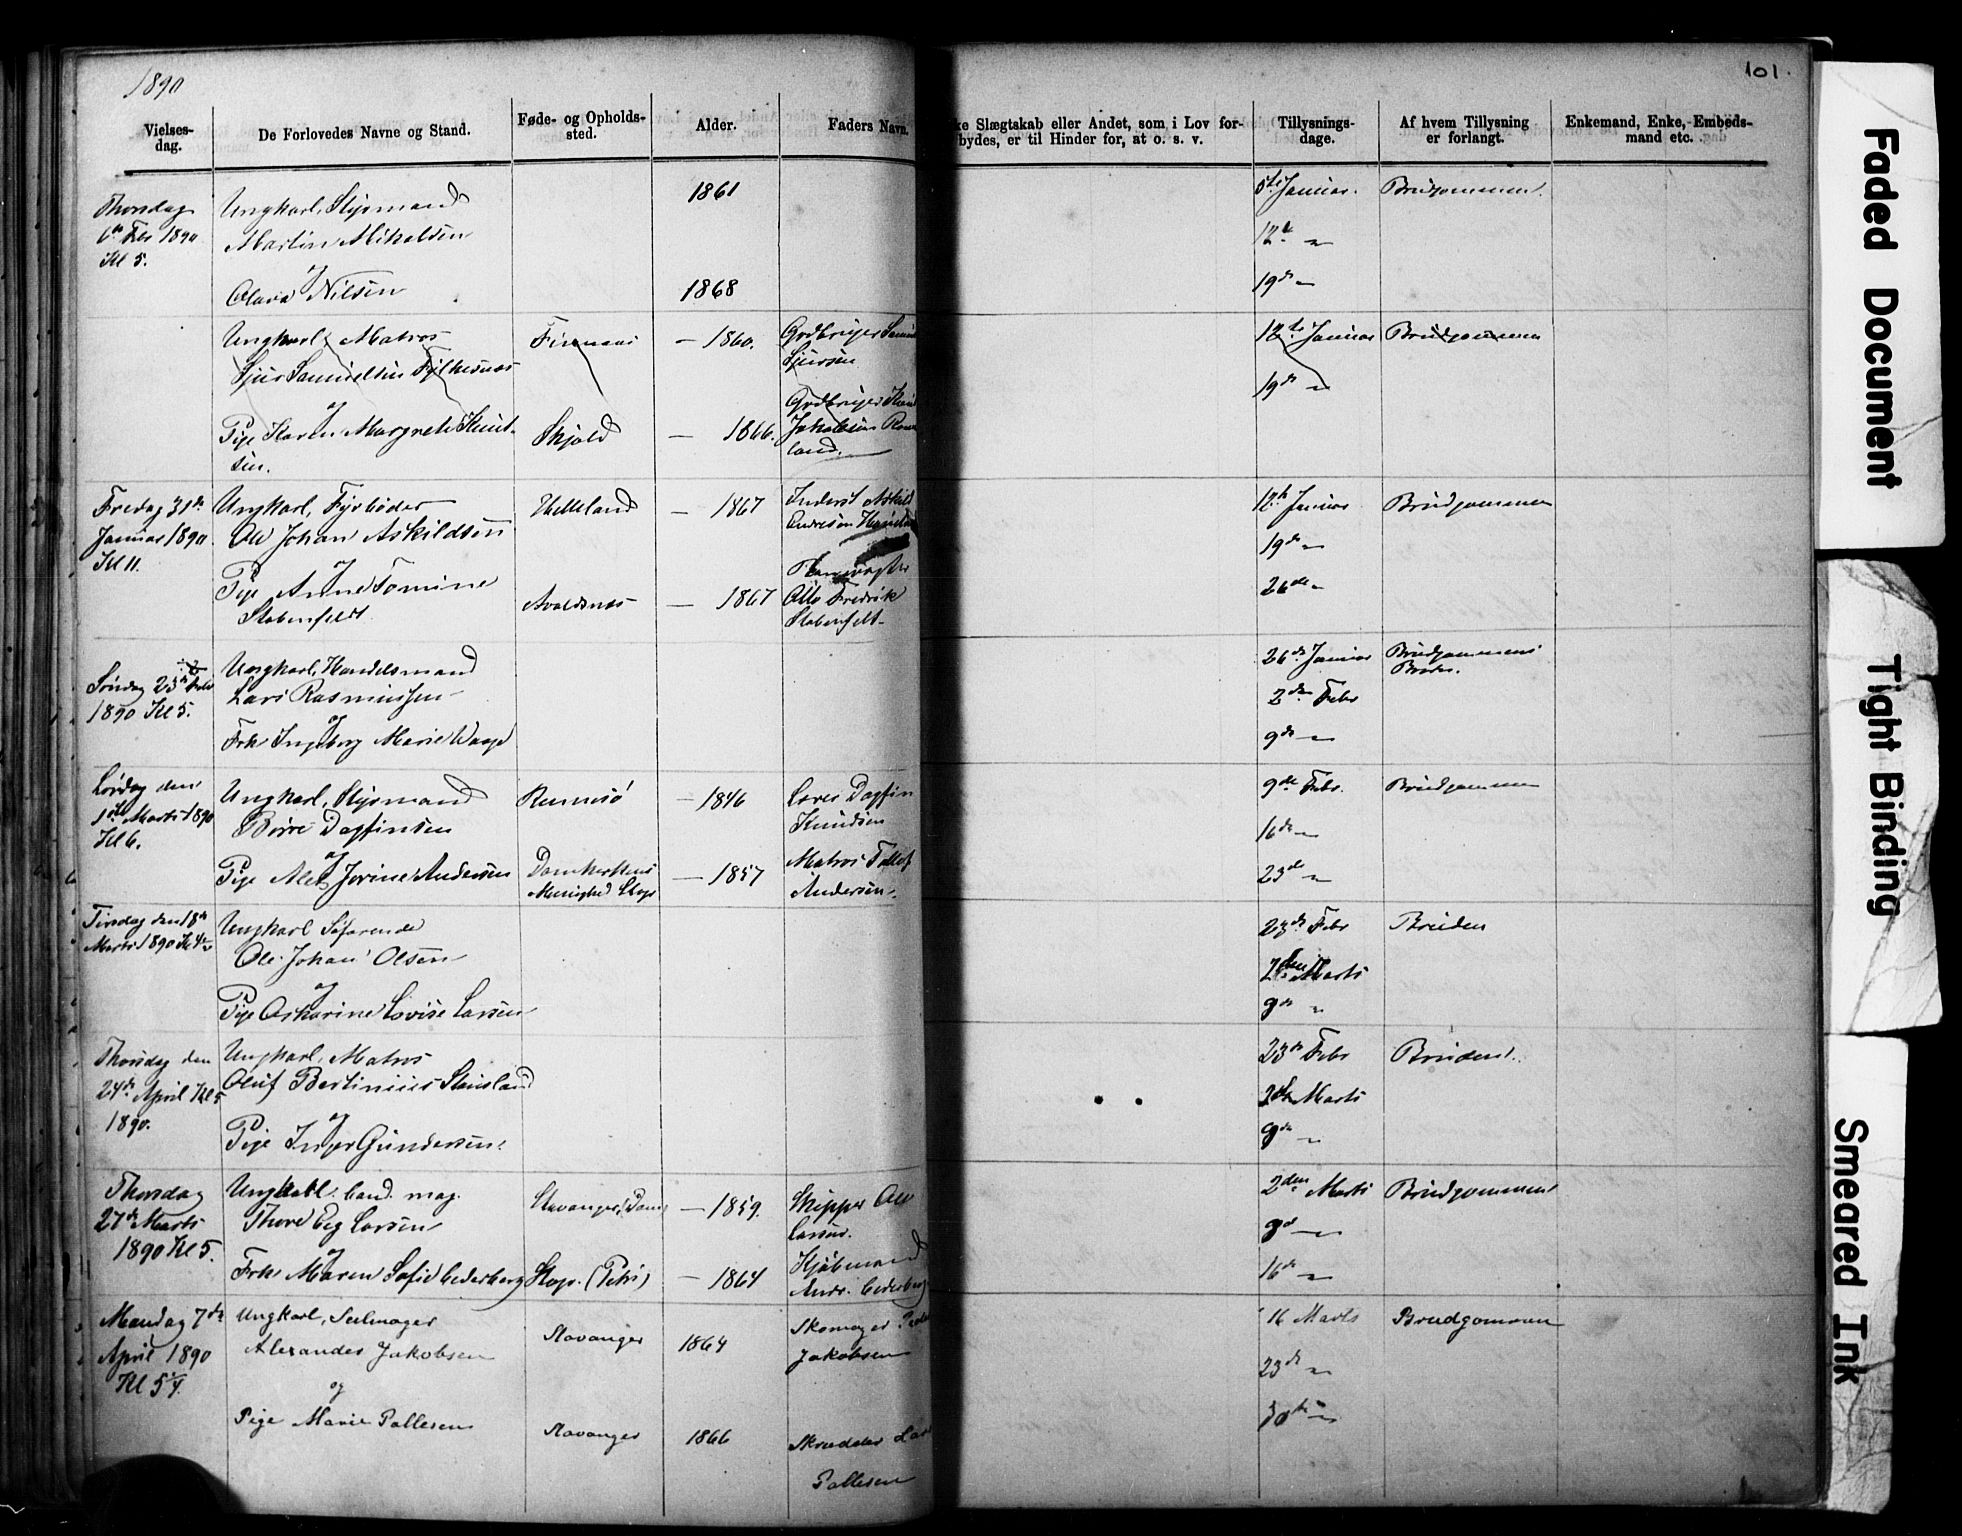 1890
101.
Vielses-
dag.
De Forlovedes Navne og Stand.
Føde- og Opholds-
sted.
Alder.
Faders Navn.
ke Slægtskab eller Andet, som i Lov for-
bydes, er til Hinder for, at o. s. v.
Tillysnings-
dage.
Af hvem Tillysning
er forlangt.
Enkemand, Enke, Embeds-
mand etc.
Thorsdag
6te Feb 1890
Kl 5.
Ungkarl, Styrmand
Martin Mikalsen
og
Olava Nilsen
1861
1868
5te Januar.
12te "
19de "
Brudgommen.
Ungkarl, Matros
Sjur Samuelsen Fylkesnes
og
Pige Karen Margrete Knut-
sen.
Finnaas
Skjold
— 1860.
— 1866.
Grdbruger
Sjursen
Grdbruger
Jakobsen
land.
12te Januar
19de "
Brudgommen
Fredag 31te
Januar 1890.
Kl 11.
Ungkarl, Fyrbøder
Ole Johan Askildsen
og
Pige Anne Tomine
Stabenfeldt
Helleland
Avaldsnes
— 1867
— 1867
Inderst Askild
Andresen
Otto Fredrik
Stabenfelt
12te Januar
19de "
26de "
Brudgommen
Søndag 23de Febr
1890 Kl 5.
Ungkarl, Handelsmand
Lars Rasmussen
og
Frk Ingeborg Marie Waage
26de Januar
2den Febr
9de "
Brudgommens
Broder.
Lørdag den
1ste Marts 1890
Kl 6.
Ungkarl, Styrmand
Børre Dagfinsen
og
Pige Alex Jorine Andersen
Rennesø
Domkirkens
Menighed Stvgr
— 1846
— 1857
Dagfin
Knudsen
Matros Tollef
Andersen.
9de Febr.
16de "
23de "
Brudgommen
Tirsdag den 18de
Marts 1890 Kl 4½
Ungkarl Søfarende
Ole Johan Olsen
og
Pige Oskarine Lovise Larsen
23de Febr
2den Marts
9de "
Bruden
Thorsdag den
24de April Kl 5
1890.
Ungkarl, Matros
Oluf Bertinius Stensland
og
Pige Inger Gundersen.
23de Febr
2den Marts
9de "
Bruden.
Thorsdag
27de Marts
1890 Kl 5.
Ungkarl. Cand. mag.
Thore Eeg Larsen
og
Frk Maren Sofie Cederberg
Stavanger, Dom
Stvgr. (Petri)
— 1859.
— 1864
Skipper Ole
Larsen.
Kjøbmand
Andr. Cederberg
2den Marts
9de "
16de "
Brudgommen
Mandag 7de
April 1890
Kl 5¼.
Ungkarl, Seilmager
Alexander Jakobsen
og
Pige Marie Pallesen
Stavanger
Stavanger
1864
1866
Skomager Peder
Jakobsen
Skrædder Lars
Pallesen
16 Marts
23de "
30te "
Brudgommen
Faded Document
Tight Binding
Smeared Ink